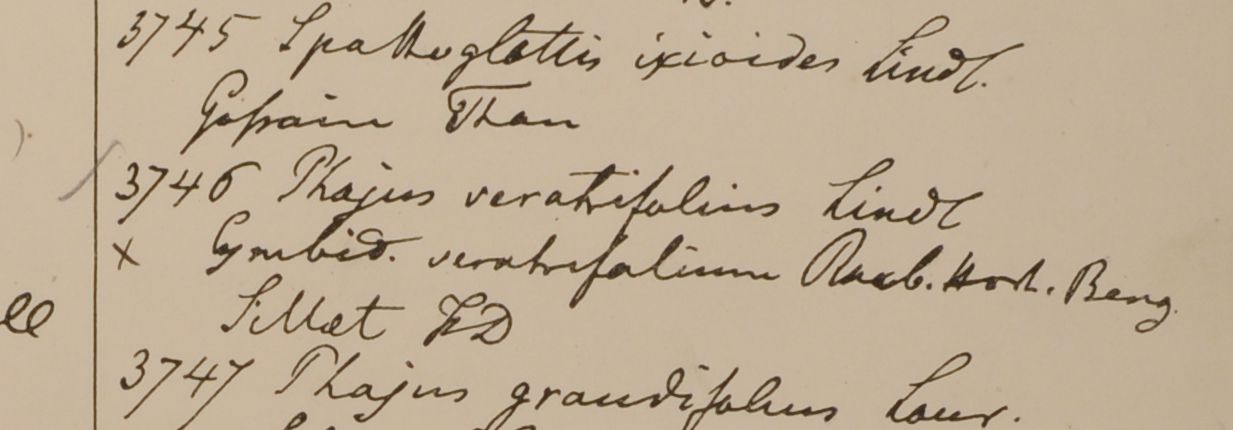 3745 Spathoglottis ixioides Lindl.
Gossain Than
3746 Phajus veratrifolius Lindl
x Cymbid. veratrifolium Roxb. Hort. Beng.
Sillet HD
3747 Phajus grandifolius Lour.